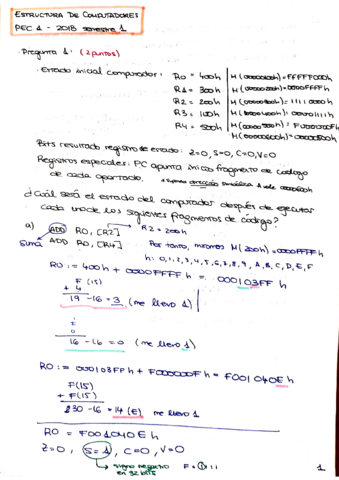 ESTRUCTURA DE COMPUTADORES
PEC 1 - 2018 semestre 1
Pregunta 1: (2 puntos)
· Estado inicial computador: R0 = 400h M(00000100h)=FFFFF000h
R1 = 300h M(00000200h)=0000FFFFh
R2 = 200h M(00000300h)=11110000h
R3 = 100h M(00000400h)=00001111h
R4 = 500h M(00000500h)=F000000Fh
M(00000600h)=00000500h
Bits resultado registro de estado: Z=0, S=0, C=0, V=0
Registros especiales: PC apunta inicio fragmento de código
de cada apartado. * dirección simbólica A vale
¿Cuál será el estado del computador después de ejecutar
cada uno de los siguientes fragmentos de código?
a) ADD R0, [R2] R2 = 200h
suma ADD R0, [R4] Por tanto, miramos M(200h)=0000FFFFh
h: 0,1,2,3,4,5,6,7,8,9,A,B,C,D,E,F
R0 := 400h + 0000FFFFh = 000103FFh
F (15)
+ 4
19 -16 = 3 (me llevo 1)
1
F
0
16 -16 = 0 (me llevo 1)
R0 := 000103FFh + F000000Fh = F001040Eh
F(15)
+ F(15)
30 -16 = 14 (E) me llevo 1
R0 = F001040Eh
Z=0, S=1, C=0, V=0
signo negativo
en 32 bits
F = 1111
1